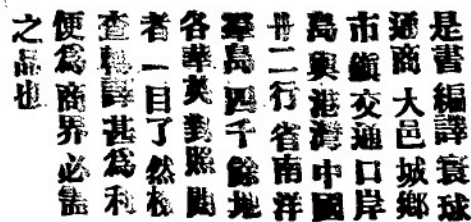 是書編譯寰球
通商大邑城鄉
市鎮交通口岸
島輿港灣中國
廿二行省南洋
羣島四千餘地
各華英對照閱
者一目了然檢
查翻譯甚為利
便爲商界必需
之品也